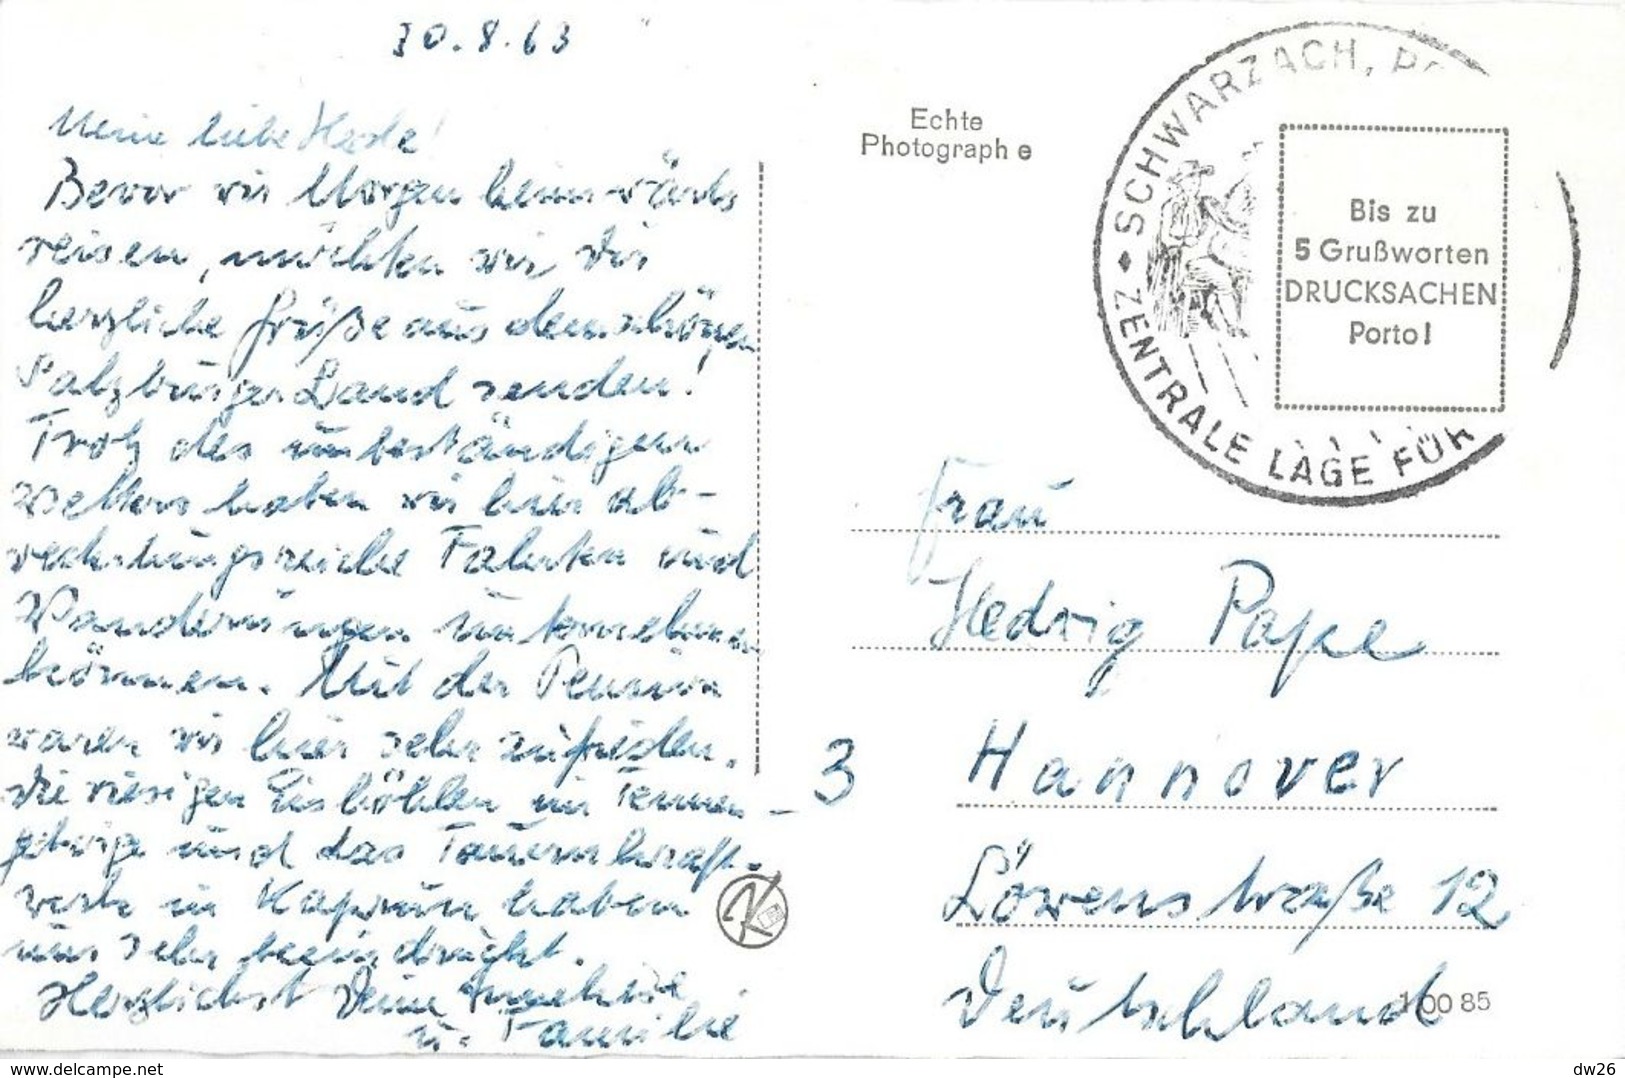 30.8.63
Meine liebe Hede!
Bevor wir Morgen heimwärts
reisen, möchten wir Dir
herzliche Grüße aus dem schönen
Salzburger Land senden!
Trotz des unbeständigen
Wetters haben wir hier ab-
wechslungsreiche Fahrten und
Wanderungen unternehmen
können. Mit der Pension
waren wir hier sehr zufrieden.
Die riesigen Eishöhlen im Tennen-
gebirge und das Tauernkraft-
werk in Kaprun haben
uns sehr beeindruckt.
Herzlichst Deine
u. Familie
Echte
Photographie
SCHWARZACH,
ZENTRALE LAGE FÜR
Bis zu
5 Grußworten
DRUCKSACHEN
Porto!
Frau
Hedwig Pape
3 Hannover
Löwenstraße 12
Deutschland
100 85
www.delcampe.net
dw26